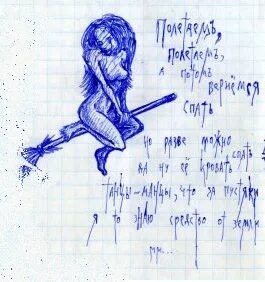 Полетаемъ,
полетаемъ,
а потомъ
вернёмся
спать
но разве можно
спать
да ну её кровать
танцы-манцы, что за пустяки
я то знаю средство от земли